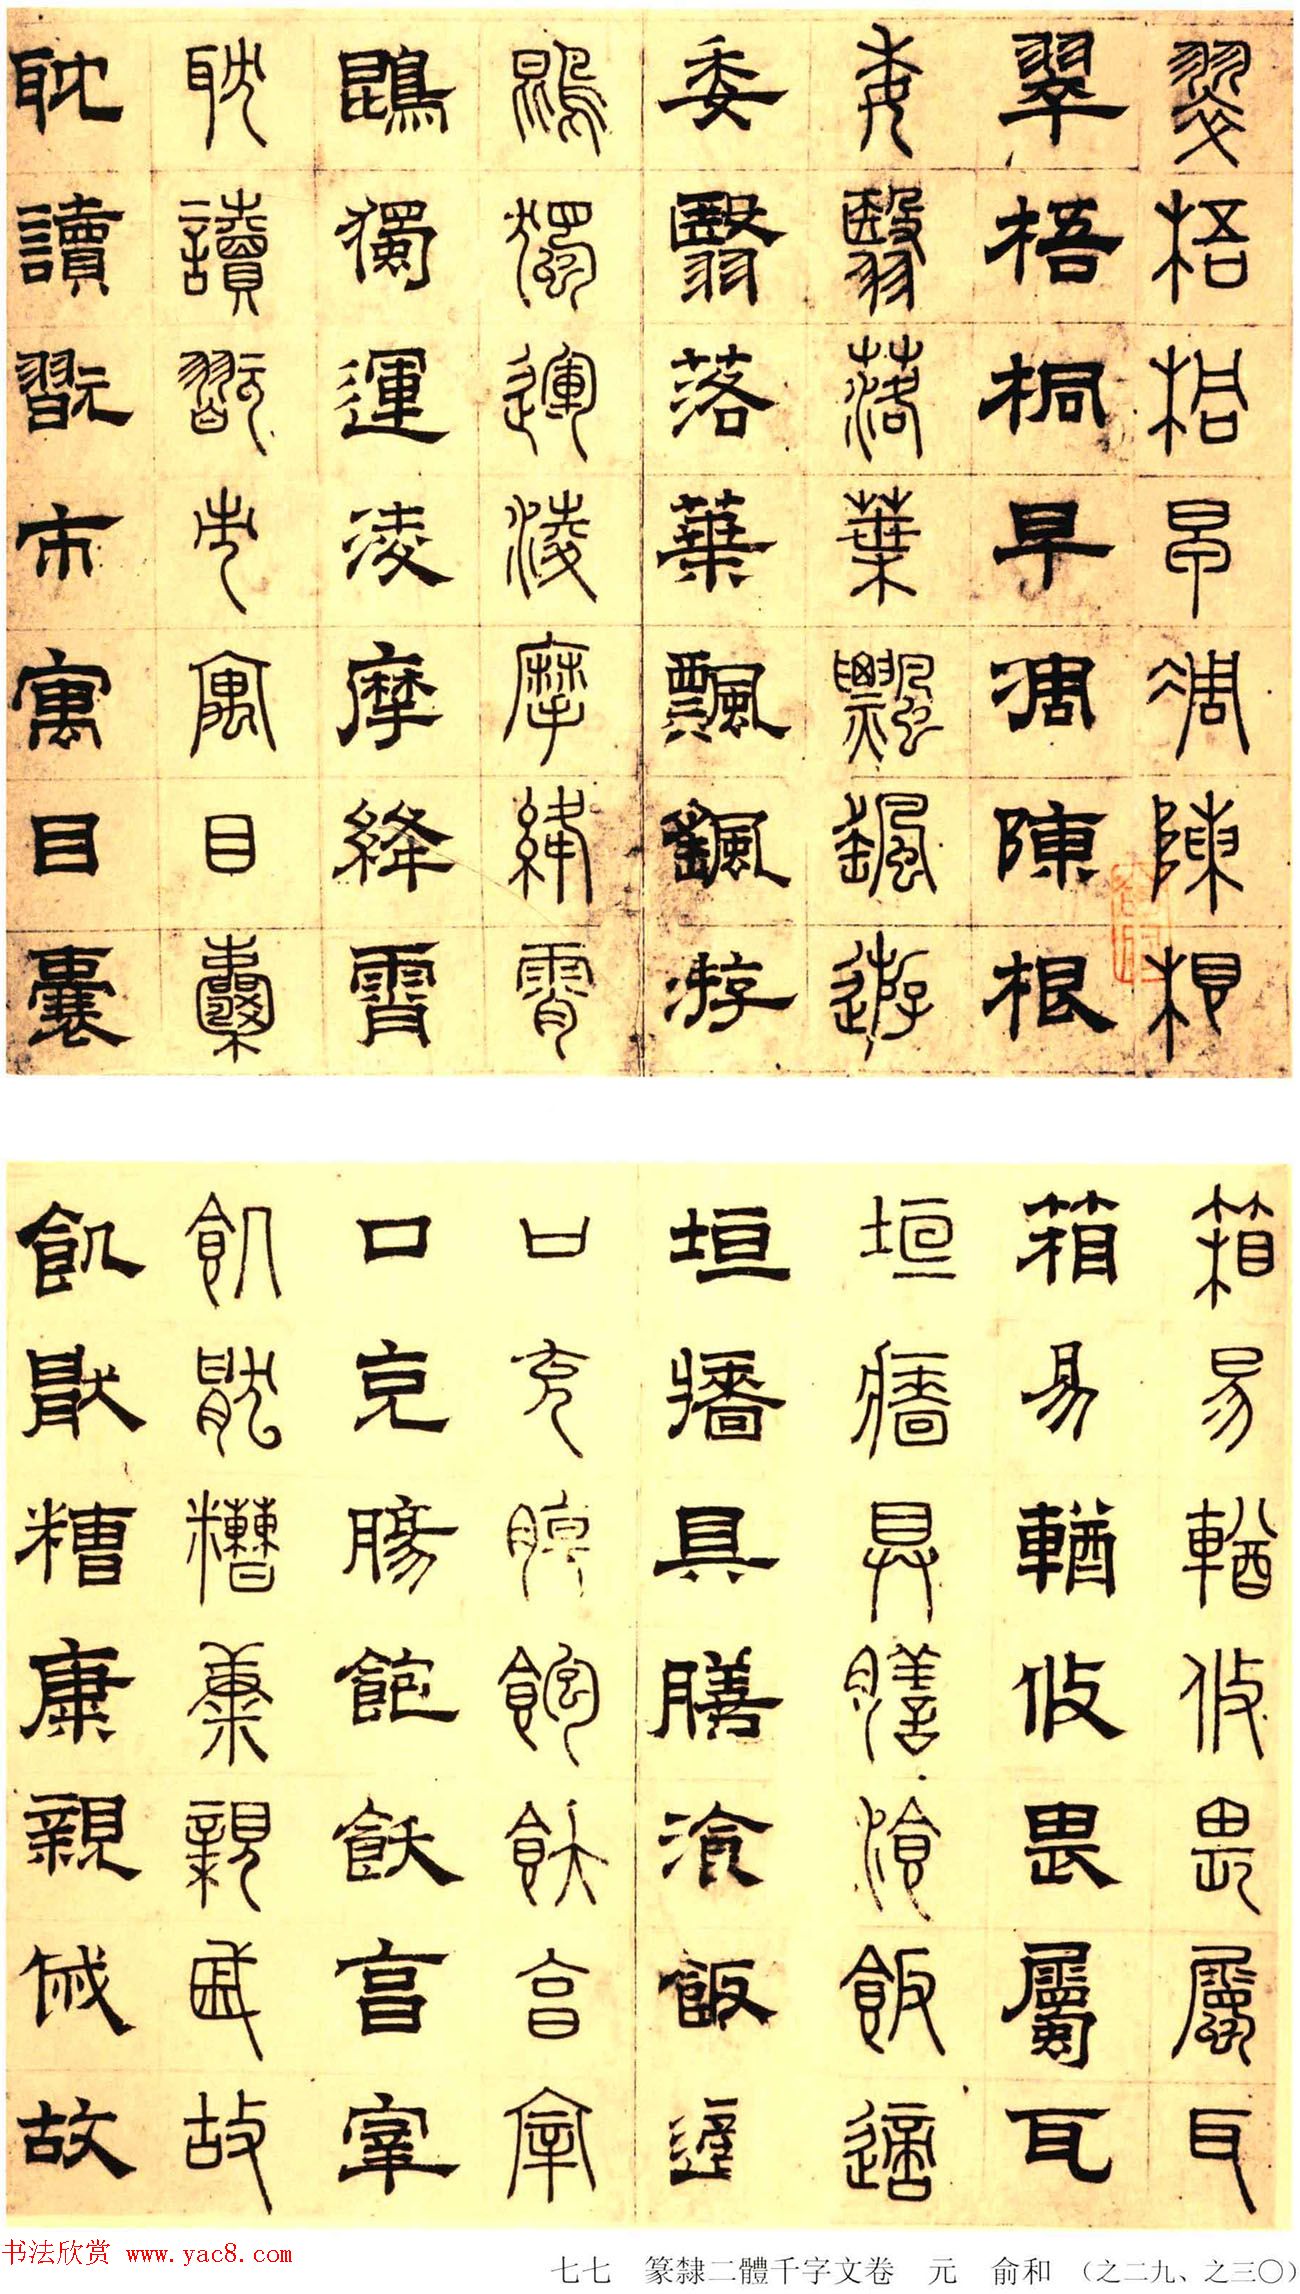 翠梧桐早凋陳根
翠梧桐早凋陳根
委翳落葉飄颻遊
委翳落葉飄颻游
鵾獨運淩摩絳霄
鵾獨運淩摩絳霄
耽讀翫市寓目囊
耽讀翫市寓目囊
箱易輶攸畏屬耳
箱易輶攸畏屬耳
垣牆具膳飡飯適
垣牆具膳飡飯適
口充腸飽飫亯宰
口充腸飽飫亯宰
飢厭糟穅親戚故
飢厭糟康親戚故
书法欣赏 www.yac8.com
七七 篆隸二體千字文卷 元 俞和 (之二九、之三〇)